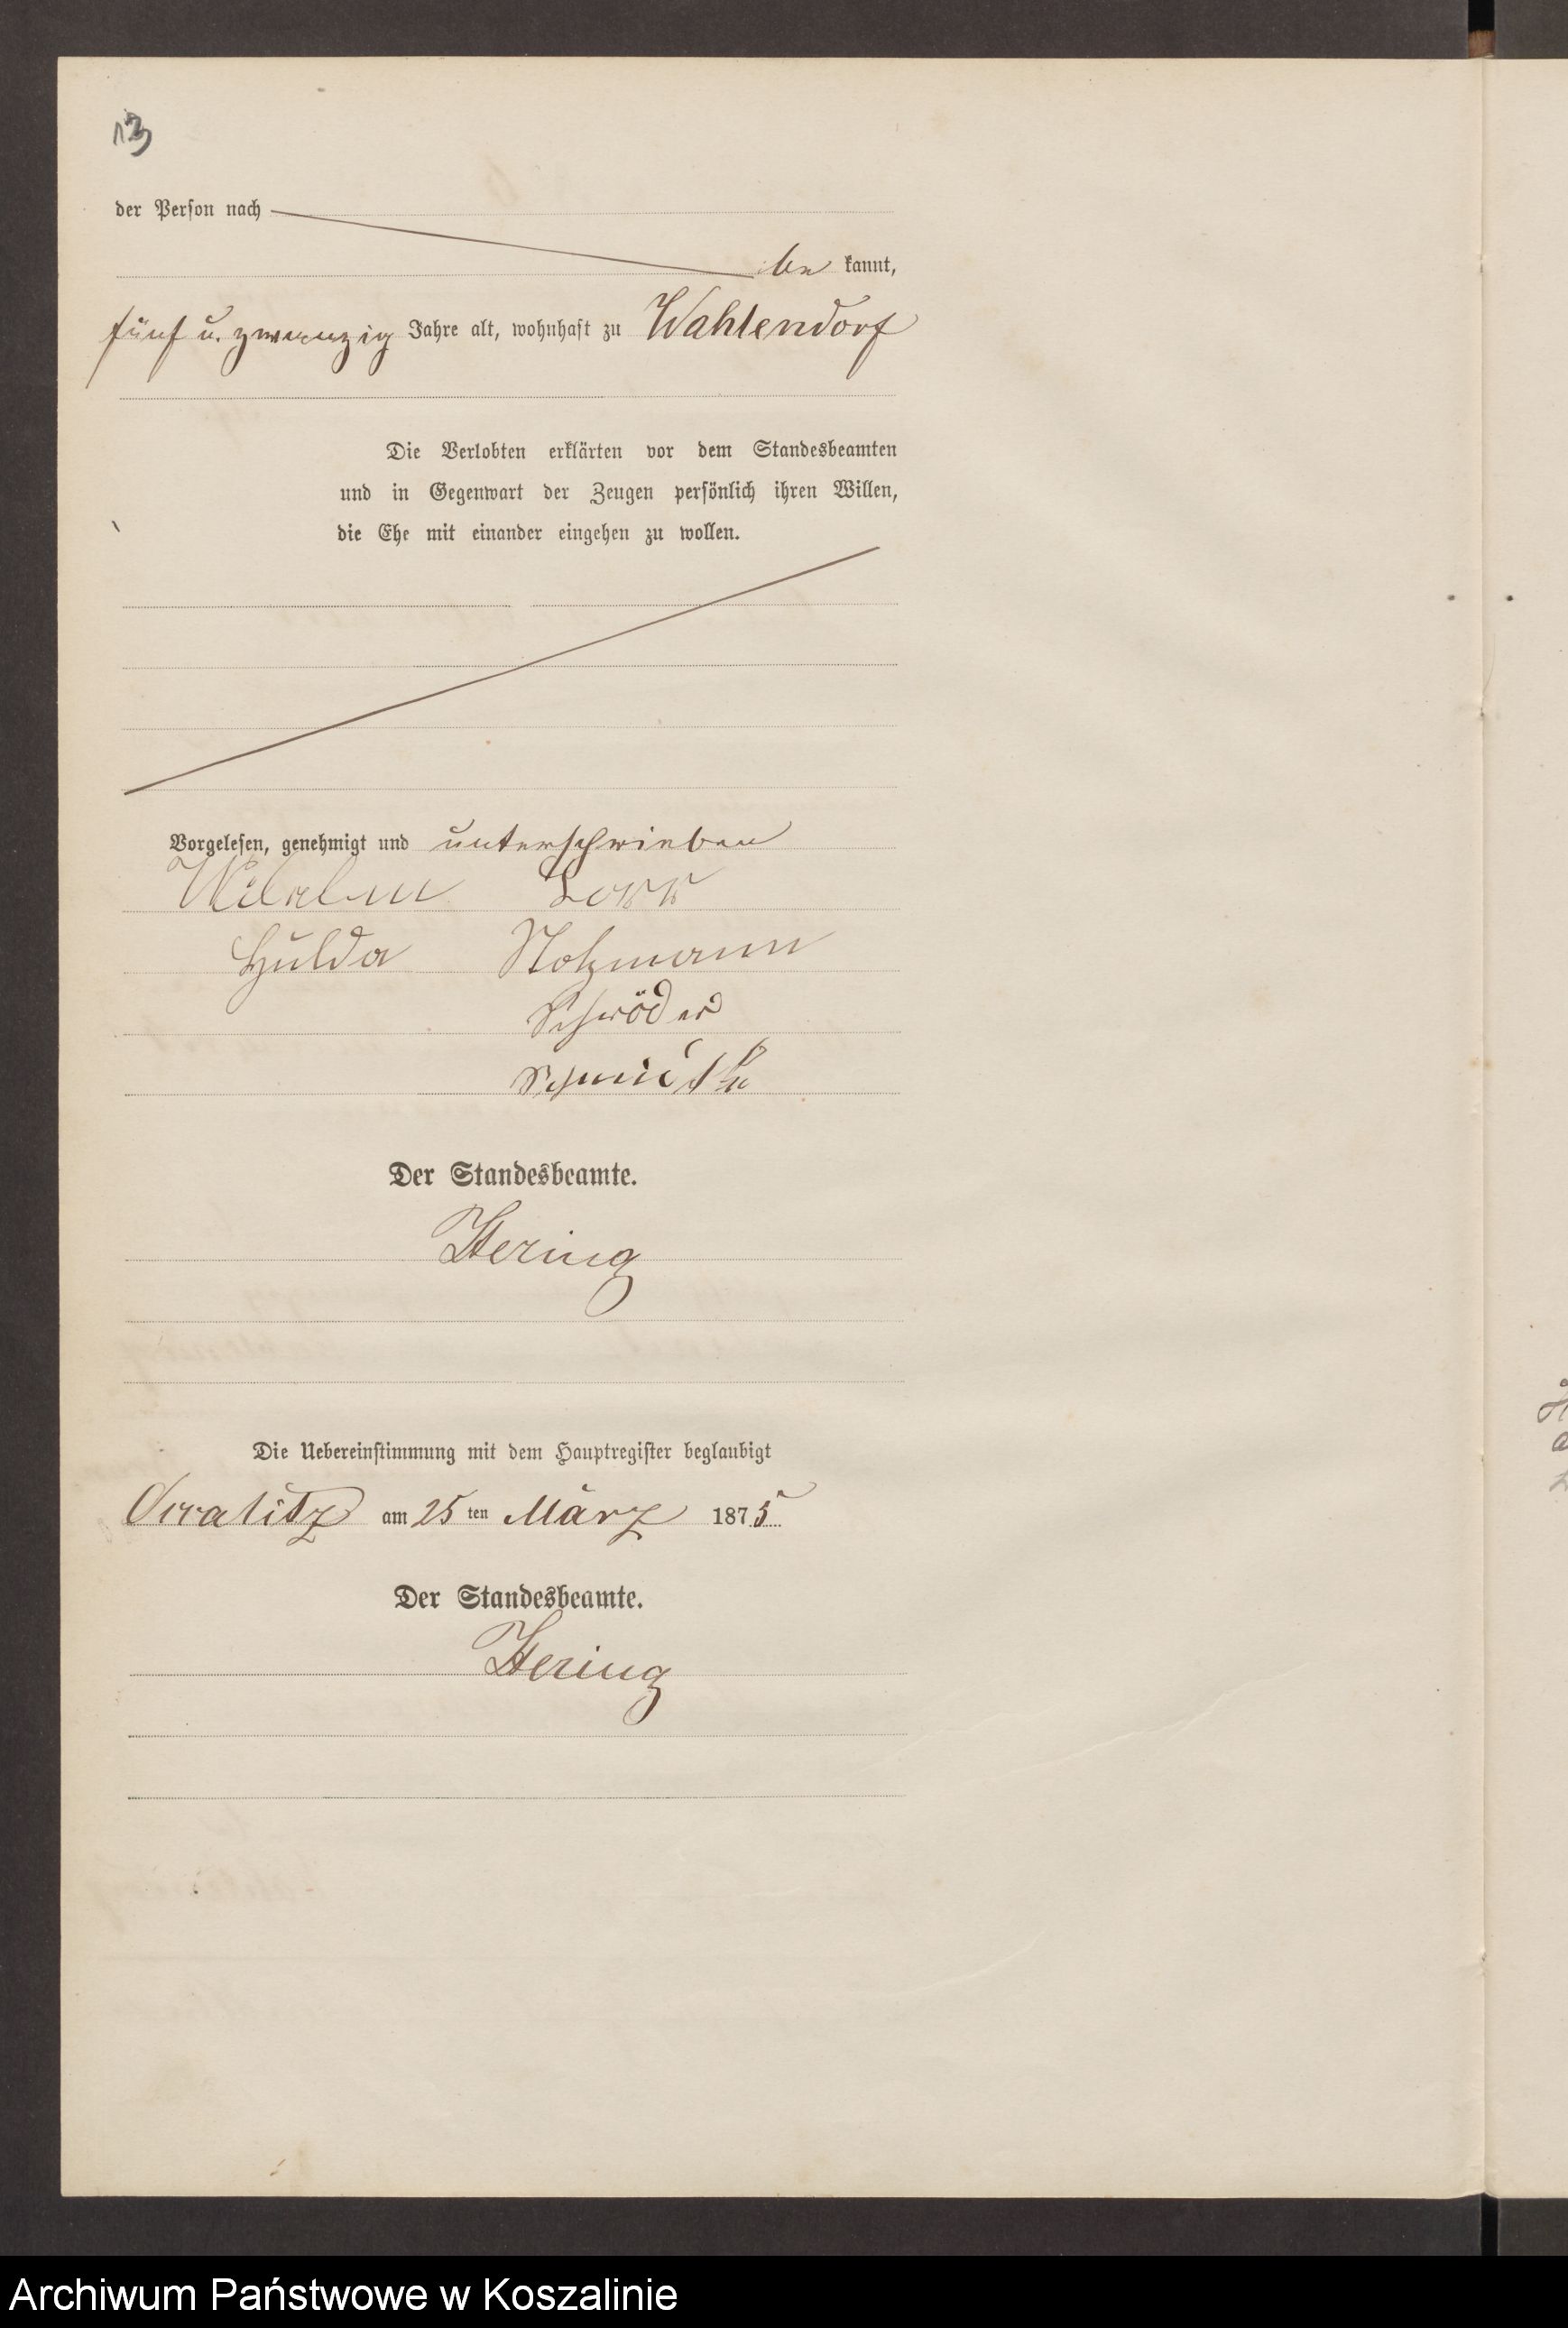 13
der Person nach
be kannt,
fünf u. zwanzig Jahre alt, wohnhaft zu Wahlendorf
Die Verlobten erklärten vor dem Standesbeamten
und in Gegenwart der Zeugen persönlich ihren Willen,
die Ehe mit einander eingehen zu wollen.
Vorgelesen, genehmigt und unterschrieben
Wilhelm
Hulda Notzmann
Schröder
Der Standesbeamte.
Hering
Die Uebereinstimmung mit dem Hauptregister beglaubigt
am 25 ten März 1875
Der Standesbeamte.
Hering
Archiwum Państwowe w Koszalinie